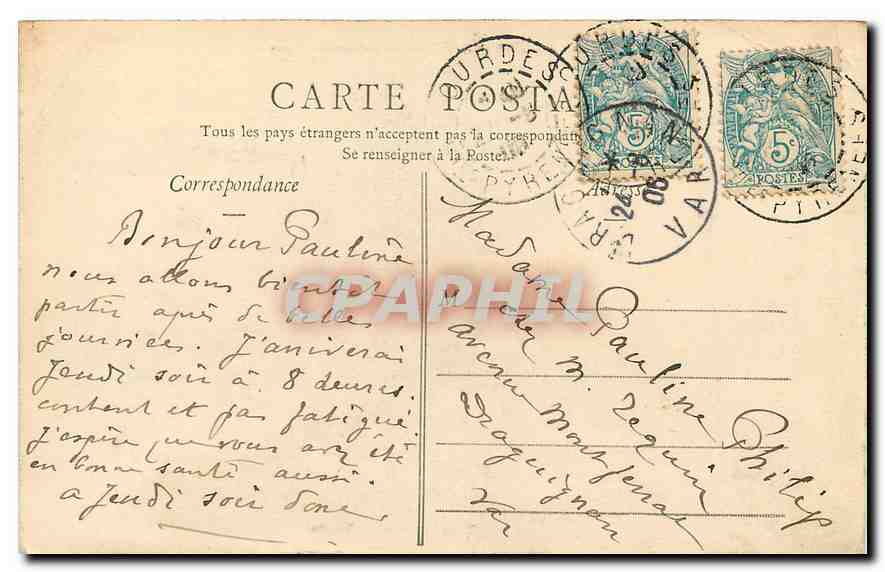 CARTE POSTA
Tous les pays étrangers n'acceptent pas la correspondan
Se renseigner à la Poste
Correspondance
Adresse
Bonjour Pauline
nous allons bientot
partir après de belles
journées. J'arriverai
Jeudi soir à 8 heures.
content et pas fatigué
J'espère que vous avez été
en bonne santé aussi.
a Jeudi soir donc
Madame Pauline Philip
chez M. Jequier
avenue Montferrat
Draguignan
Var
OURDES
PYREN
OURDES
5c
POSTES
DRAGUIGNAN
24
06
VAR
5c
POSTES
PYRENEES
CPAPHIL